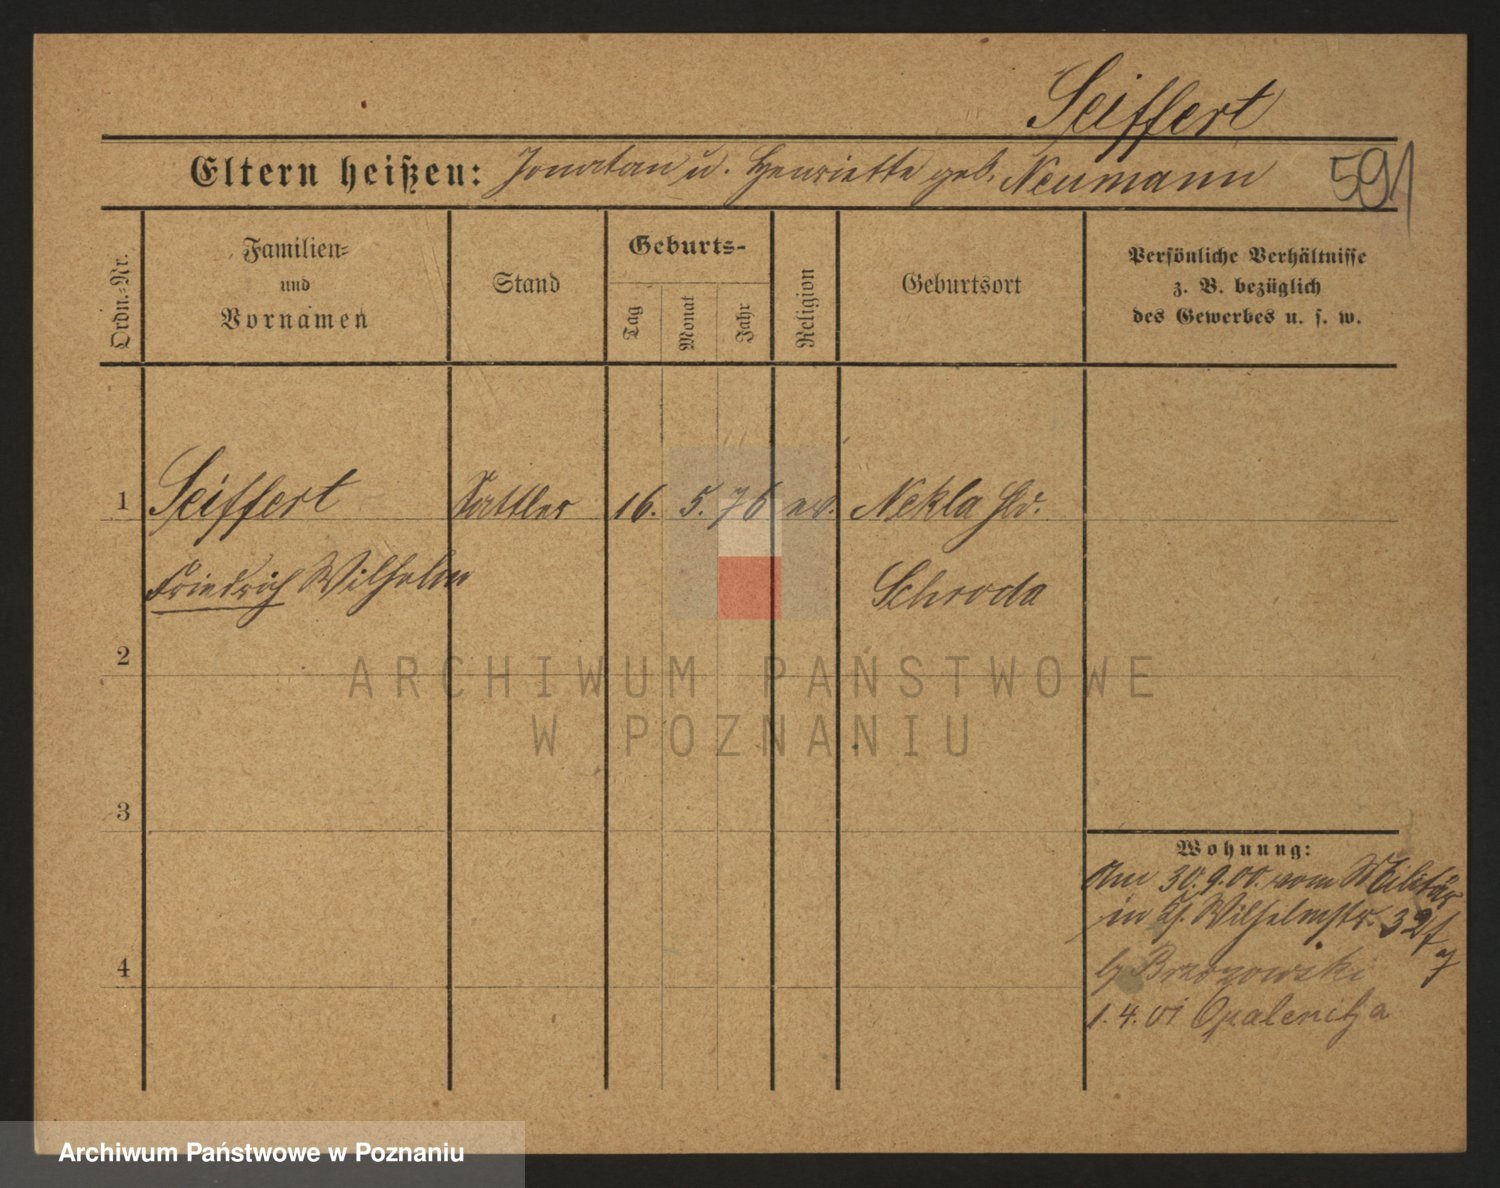 Seiffert
Eltern heißen: Jonatan u. Henriette geb. Neumann
591
Ordn.-Nr.
Familien-
und
Vornamen
Stand
Geburts-
Tag
Monat
Jahr
Religion
Geburtsort
Persönliche Verhältnisse
z. B. bezüglich
des Gewerbes u. s. w.
1 Seiffert Sattler 16. 5. 76 ev. Nekla
Friedrich Wilhelm Schroda
2
ARCHIWUM PAŃSTWOWE
W POZNANIU
3
Wohnung:
Am 30.9.00. vom Militär
in Wilhelmstr. 32
4
b/ Brzozowski
1.4.01 Opalenitza
Archiwum Państwowe w Poznaniu